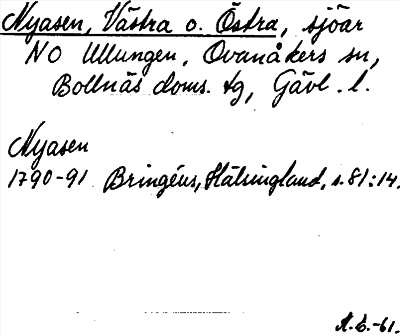 Nyasen, Västra o. Östra, sjöar
NO Ullungen, Ovanåkers sn,
Bollnäs doms. tg, Gävl. l.
Nyasen
1790-91 Bringéus, Hälsingland, s. 81:14.
A.E.-61.